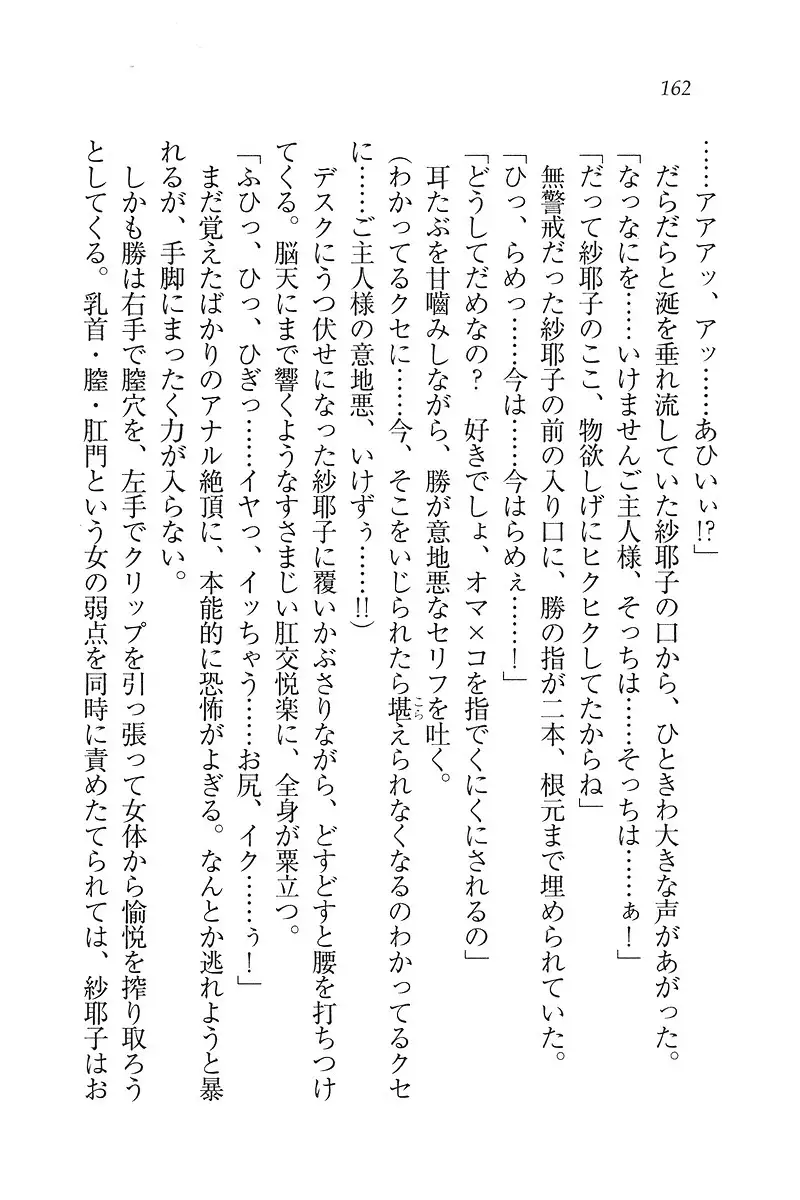 162
……アアアッ、アッ……あひいぃ!?」
だらだらと涎を垂れ流していた紗耶子の口から、ひときわ大きな声があがった。
「なっなにを……いけませんご主人様、そっちは……そっちは……ぁ!」
「だって紗耶子のここ、物欲しげにヒクヒクしてたからね」
無警戒だった紗耶子の前の入り口に、勝の指が二本、根元まで埋められていた。
「ひっ、らめっ……今は……今はらめぇ……!」
「どうしてだめなの? 好きでしょ、オマ×コを指でくにくにされるの」
耳たぶを甘嚙みしながら、勝が意地悪なセリフを吐く。
(わかってるクセに……今、そこをいじられたら堪えられなくなるのわかってるクセ
に……ご主人様の意地悪、いけずぅ……!!)
デスクにうつ伏せになった紗耶子に覆いかぶさりながら、どすどすと腰を打ちつけ
てくる。脳天にまで響くようなすさまじい肛交悦楽に、全身が粟立つ。
「ふひっ、ひっ、ひぎっ……イヤっ、イッちゃう……お尻、イク……ぅ!」
まだ覚えたばかりのアナル絶頂に、本能的に恐怖がよぎる。なんとか逃れようと暴
れるが、手脚にまったく力が入らない。
しかも勝は右手で膣穴を、左手でクリップを引っ張って女体から愉悦を搾り取ろう
としてくる。乳首・膣・肛門という女の弱点を同時に責めたてられては、紗耶子はお